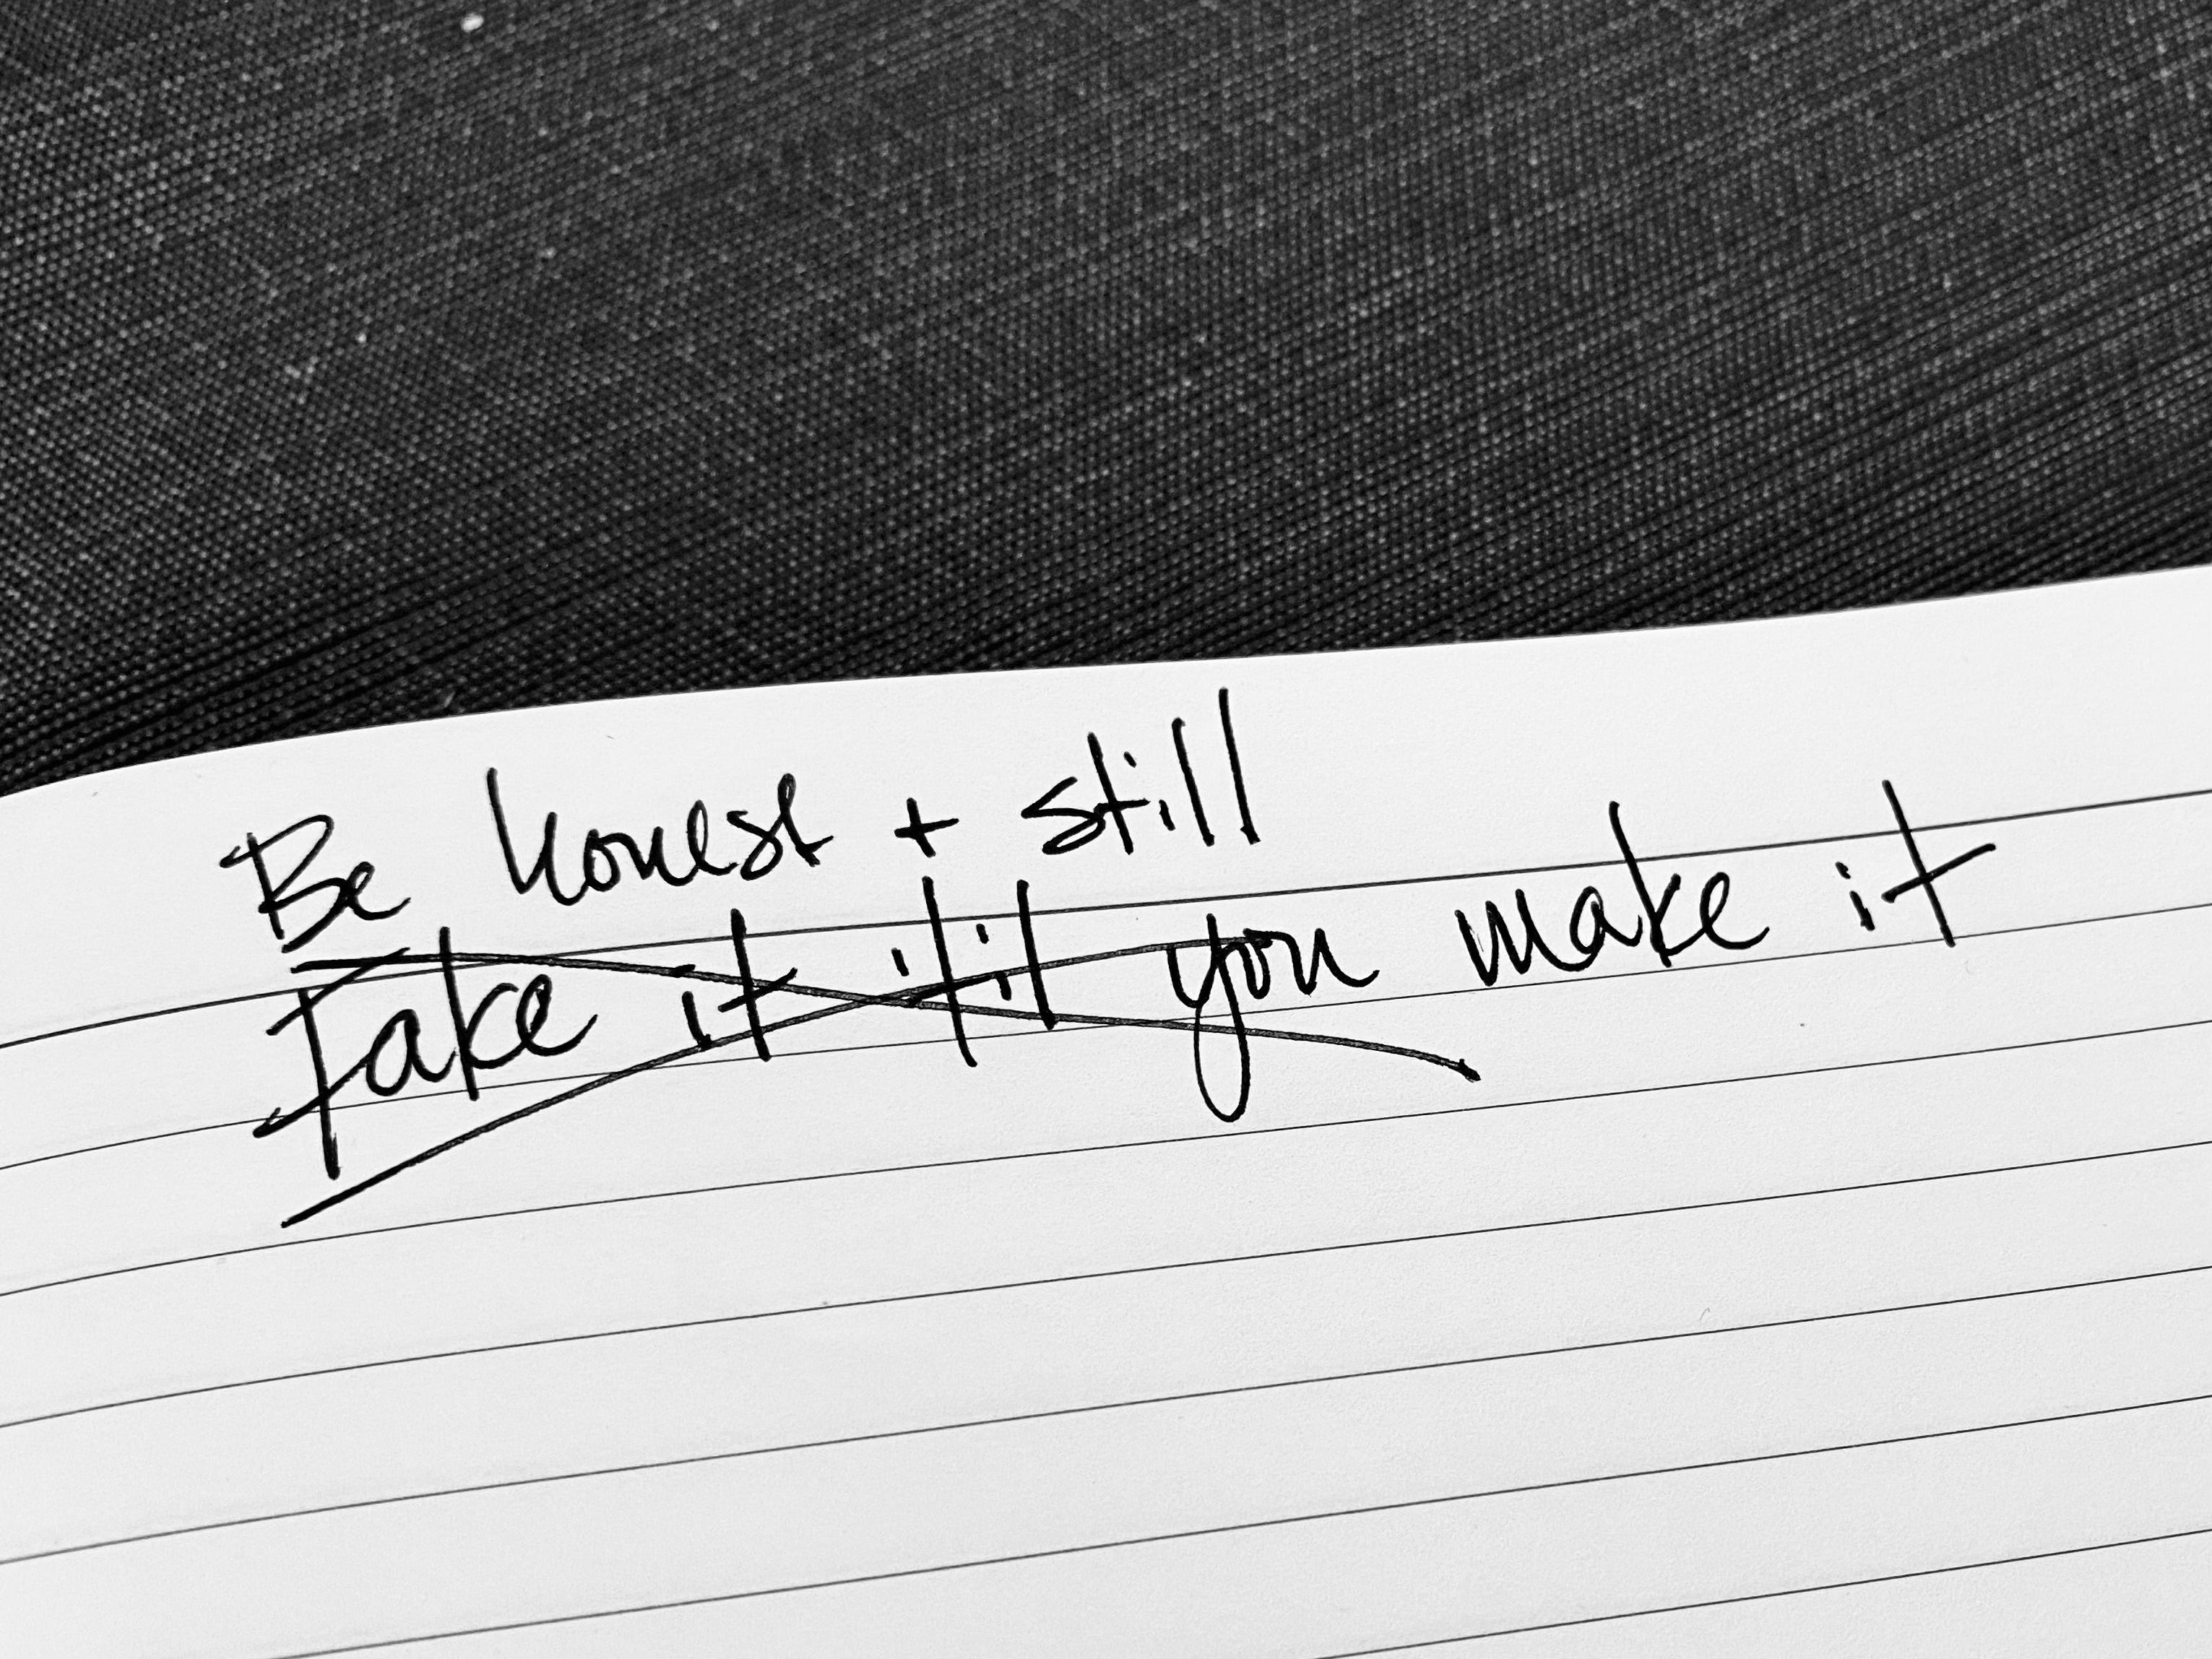 Be honest + still
Fake it 'til you make it